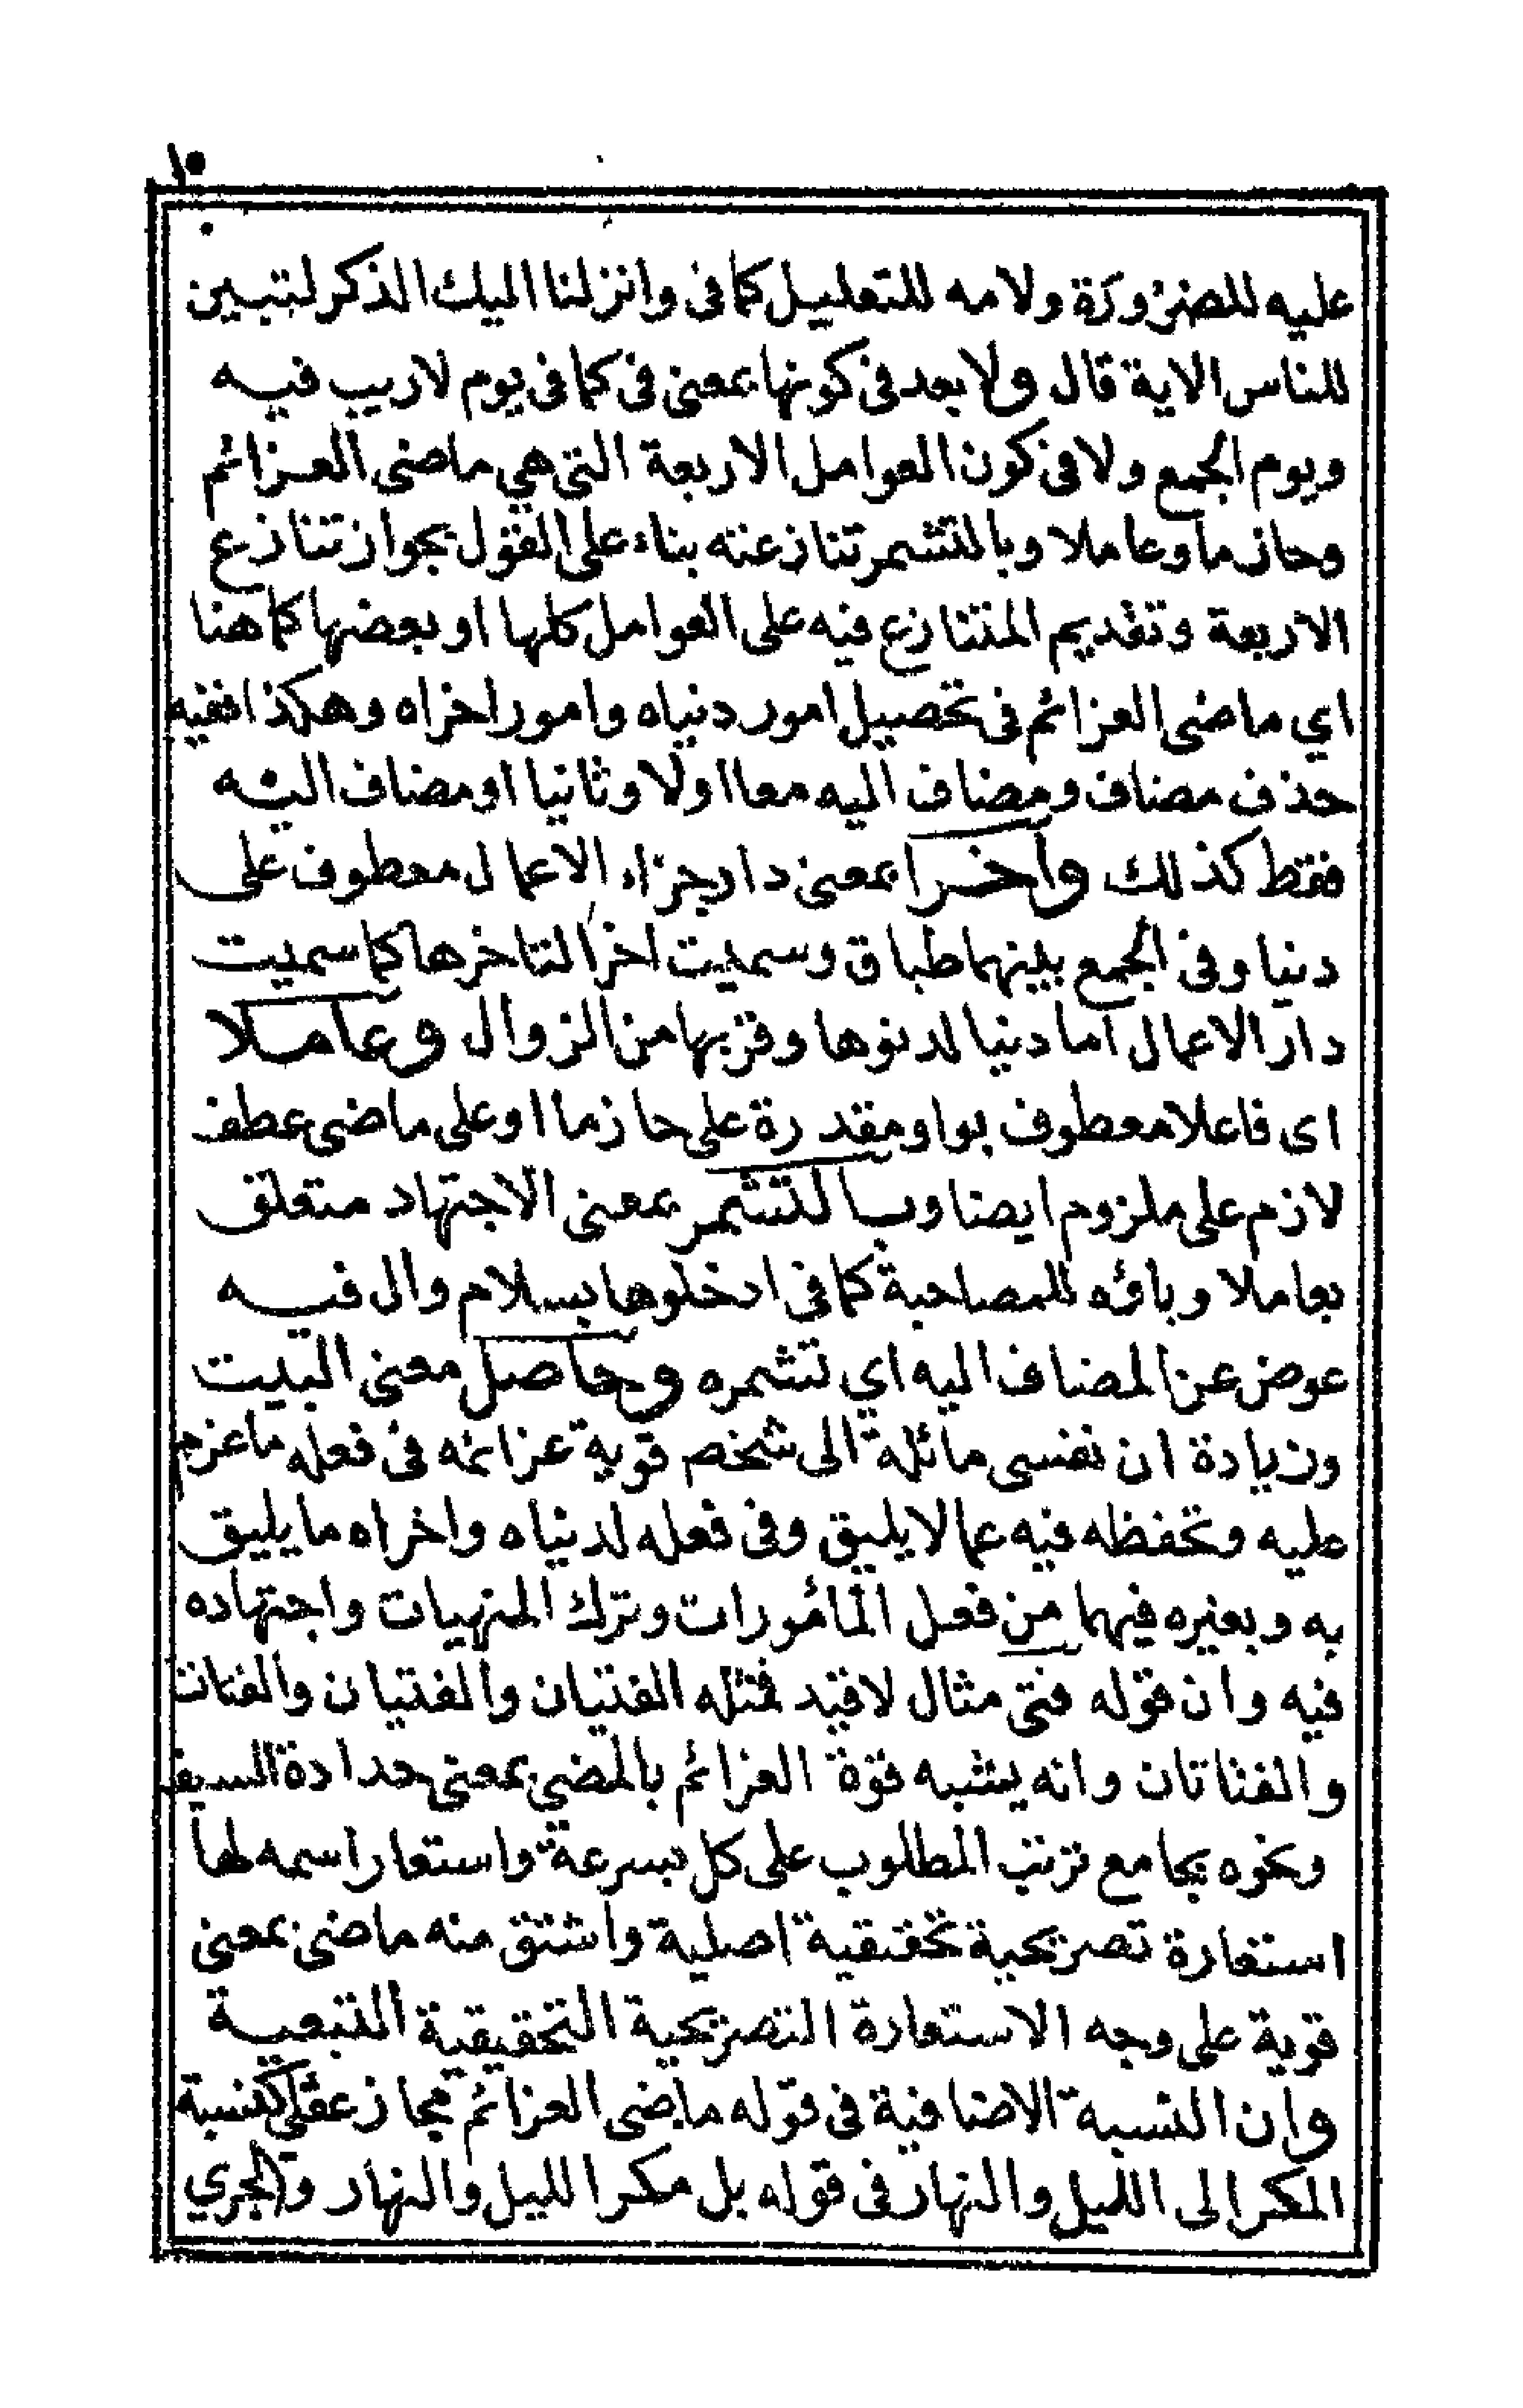 ١٠
عليه للضرورة ولامه للتعليل كما في وانزلنا اليك الذكر لتبين
للناس الاية قال ولا بعد في كونها بمعنى في كما في يوم لا ريب فيه
ويوم الجمع ولا في كون العوامل الاربعة التي هي ماضى العزائم
وحازما وعاملا وبالتشمر تنازعنه بناء على القول بجواز تنازع
الاربعة وتقديم المتنازع فيه على العوامل كلها او بعضها كما هنا
اي ماضى العزائم في تحصيل امور دنياه وامور اخراه وهكذا ففيه
حذف مضاف ومضاف اليه معا اولا وثانيا او مضاف اليه
فقط كذلك وأخرا بمعنى دار جزاء الاعمال معطوف على
دنيا وفى الجمع بينهما طباق وسميت اخرا لتاخرها كما سميت
دار الاعمال اما دنيا لدنوها وقربها من الزوال وعاملا
اى فاعلا معطوف بواو مقدرة على حازما او على ماضى عطف
لازم على ملزوم ايضا وبالتشمر بمعنى الاجتهاد متعلق
بعاملا وباؤه للمصاحبة كما فى ادخلوها بسلام وال فيه
عوض عن المضاف اليه اي تشمره وحاصل معنى البيت
وزيادة ان نفسى مائلة الى شخص قوية عزائمه فى فعله ما عزم
عليه وتحفظه فيه عما لا يليق وفى فعله لدنياه واخراه ما يليق
به وبغيره فيهما من فعل المأمورات وترك المنهيات واجتهاده
فيه وان قوله فتى مثال لا قيد فمثله الفتيان والفتيان والفتات
والفتاتان وانه يشبه قوة العزائم بالمضي بمعنى حدادة السيف
ونحوه بجامع ترتب المطلوب على كل بسرعة واستعار اسمه لها
استعارة تصريحية تحقيقية اصلية واشتق منه ماضى بمعنى
قوية على وجه الاستعارة التصريحية التحقيقية التبعية
وان النسبة الاضافية فى قوله ماضى العزائم مجاز عقلي كنسبة
المكر الى الليل والنهار فى قوله بل مكر الليل والنهار والجري